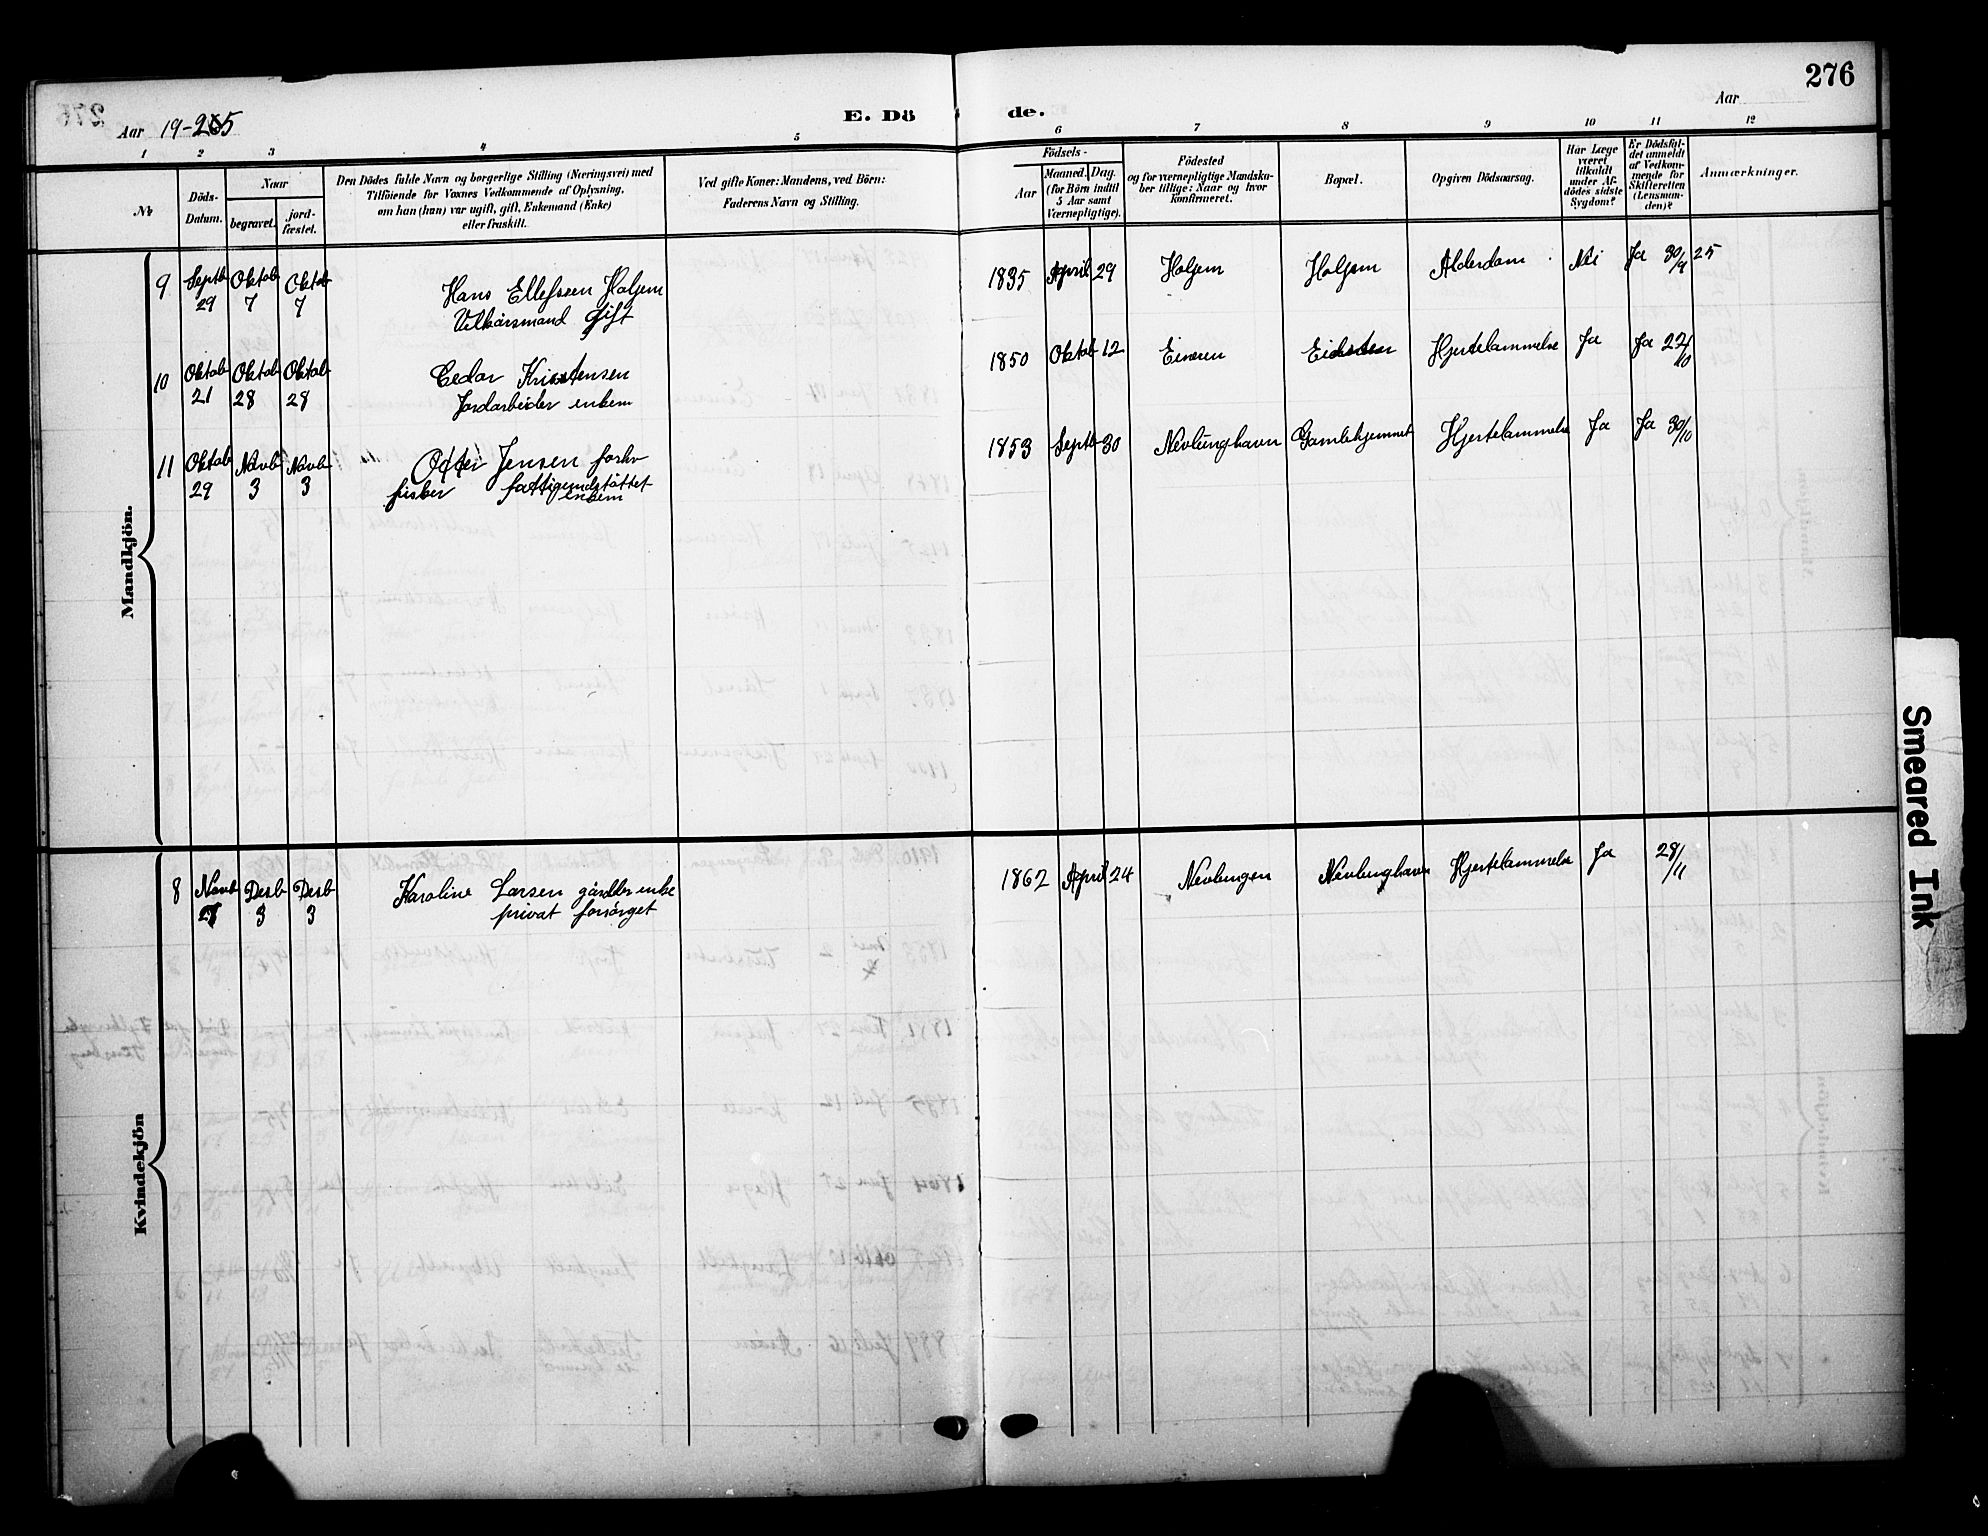 276
Aar
Aar 19-25
E. Dö de.
1 2 3 4 5 6 7 8 9 10 11 12
№
Döds-
Datum.
Naar
begravet.
jord-
fæstet.
Den Dödes fulde Navn og borgerlige Stilling (Næringsvei) med
Tilföiende for Voxnes Vedkommende af Oplysning,
om han (hun) var ugift, gift, Enkemand (Enke)
eller fraskilt.
Ved gifte Koner: Mandens, ved Börn:
Faderens Navn og Stilling.
Födsels-
Aar
Maaned. Dag.
(for Börn indtil
5 Aar samt
Værnepligtige).
Födested
og for værnepligtige Mandska-
ber tillige: Naar og hvor
konfirmeret.
Bopæl.
Opgiven Dödsaarsag.
Har Læge
været
tilkaldt
under Af-
dödes sidste
Sygdom?
Er Dödsfal-
det anmeldt
af Vedkom-
mende for
Skifteretten
(Lensman-
den)?
Anmærkninger.
Mandkjön.
9 Septb Oktob Oktob Hans Ellefssen Holjem 1835 April 29 Holjem Holjem Alderdom Nei Ja 30/9 25
29 7 7 Velkårsmand Gift
10 Oktob Oktob Oktob Kristensen 1850 Oktob 12 Hjertelammelse Ja Ja 22/10
21 28 28 Jordarbeider enkem
11 Oktob Novb Novb Jensen forhv 1853 Septb 30 Nevlunghavn Gamlehjemmet Hjertelammelse Ja Ja 30/10
29 3 3 fisker fattigundstöttet
enkem
Kvindekjön
8 Novb Desb Desb Karoline Larsen gårdbr enke 1862 April 24 Nevlungen Nevlunghavn Hjertelammelse Ja 28/11
3 3 privat forsörget
Smeared Ink